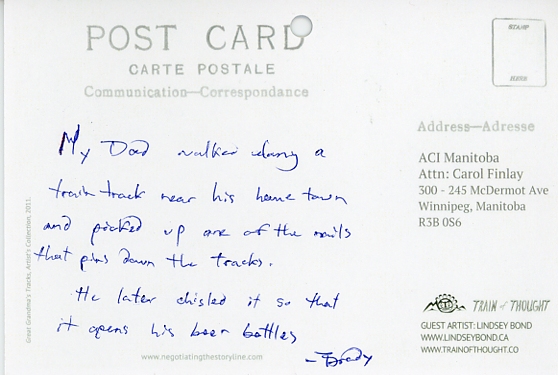 POST CARD
CARTE POSTALE
Communication—Correspondance
STAMP
My Dad walked along a
train track near his home town
and picked up one of the nails
that pins down the tracks.
He later chisled it so that
it opens his beer bottles
- Brady
Address—Adresse
ACI Manitoba
Attn: Carol Finlay
300 - 245 McDermot Ave
Winnipeg, Manitoba
R3B 0S6
TRAIN of THOUGHT
GUEST ARTIST: LINDSEY BOND
WWW.LINDSEYBOND.CA
WWW.TRAINOFTHOUGHT.CO
www.negotiatingthestoryline.com
Great Grandma's Tracks, Artist's Collection, 2011.